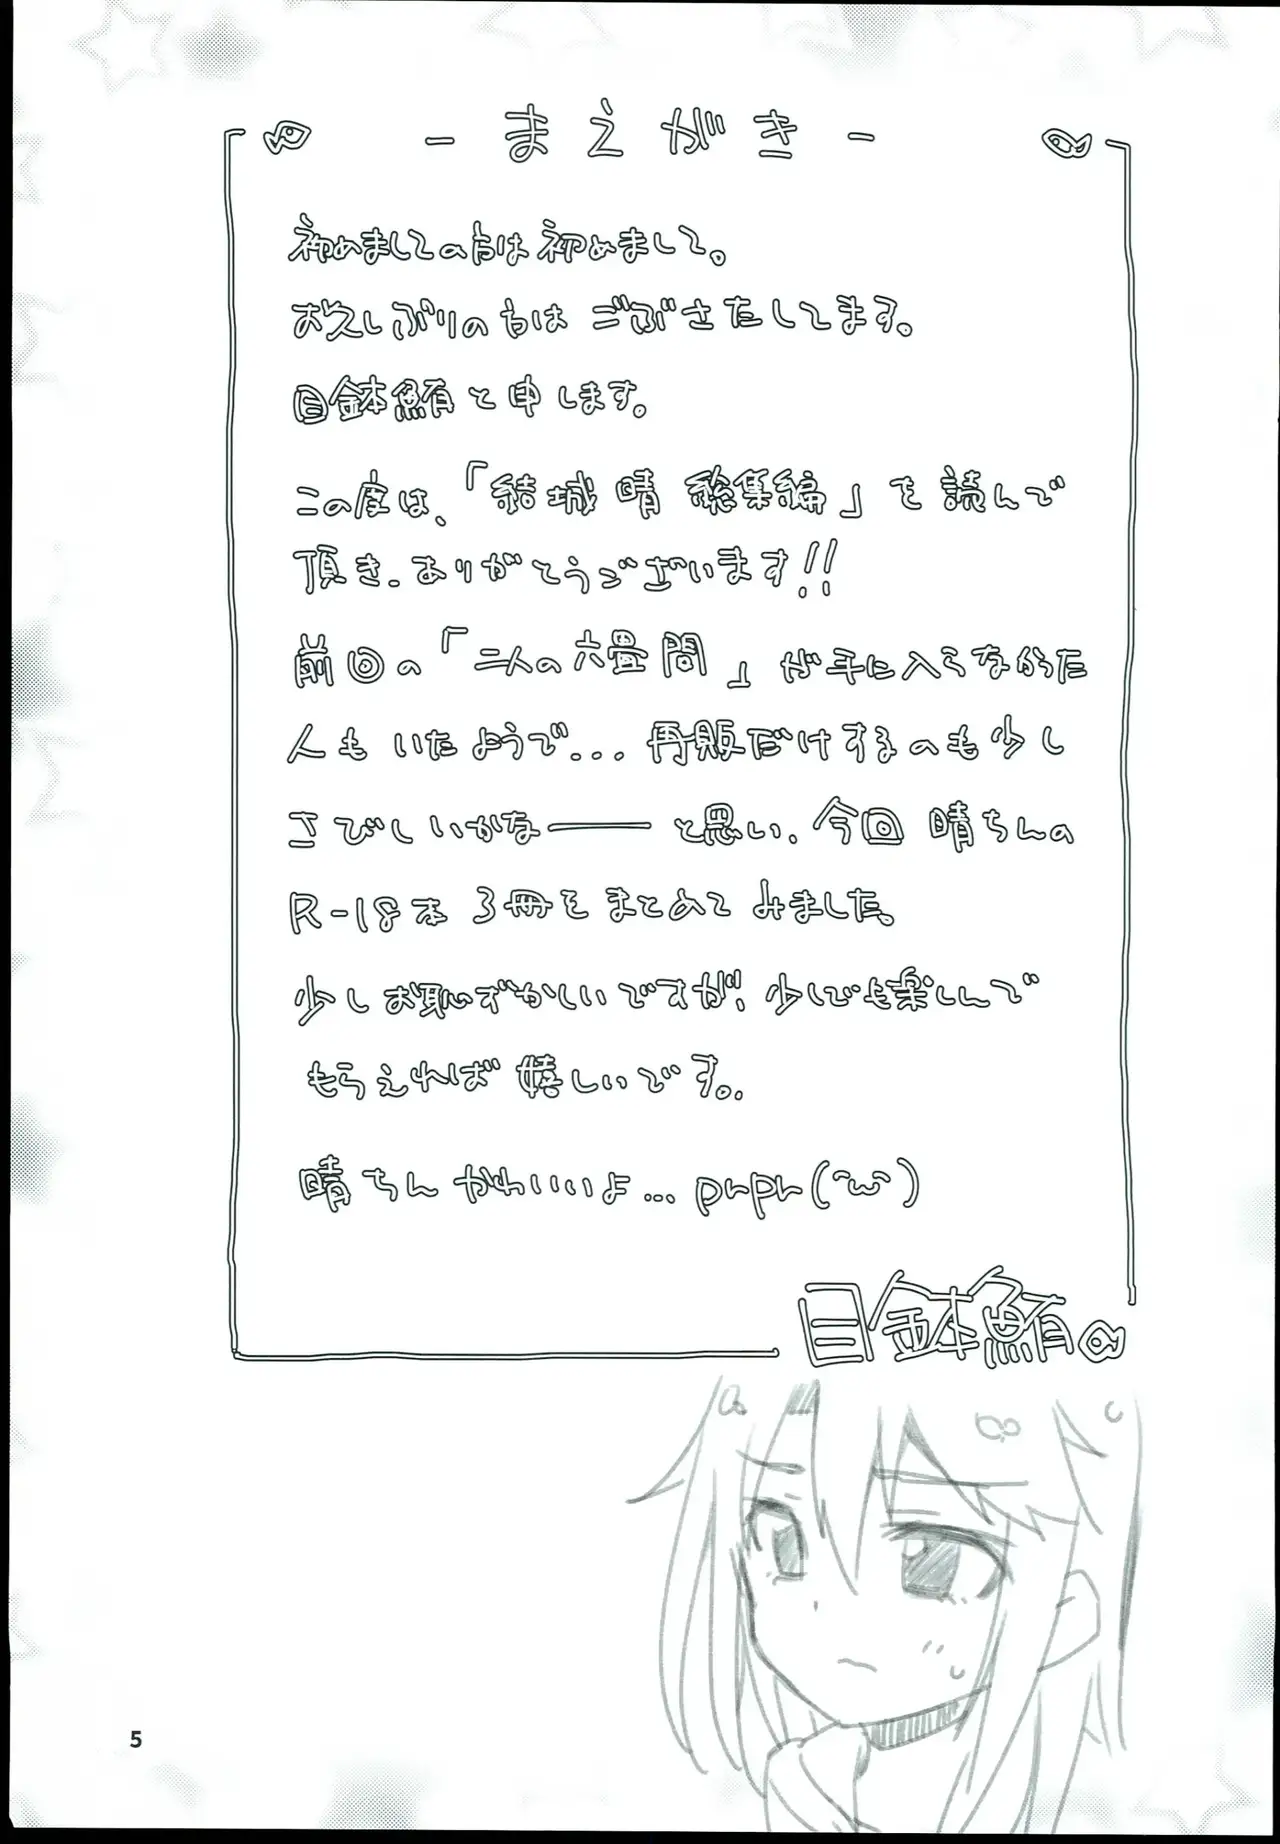 - まえがき -
初めましての方は初めまして。
お久しぶりの方は ごぶさたしてます。
目鉢鮪と申します。
この度は、「結城 晴 総集編」を読んで
頂き、ありがとうございます!!
前回の「二人の六畳間」が手に入らなかった
人も いたようで... 再販だけするのも少し
さびしいかな―― と思い、今回 晴ちんの
R-18本 3冊を まとめて みました。
少しお恥ずかしいですが、少しでも楽しんで
もらえれば 嬉しいです。
晴ちん かわいいよ... prpr(^ω^)
目鉢鮪
5